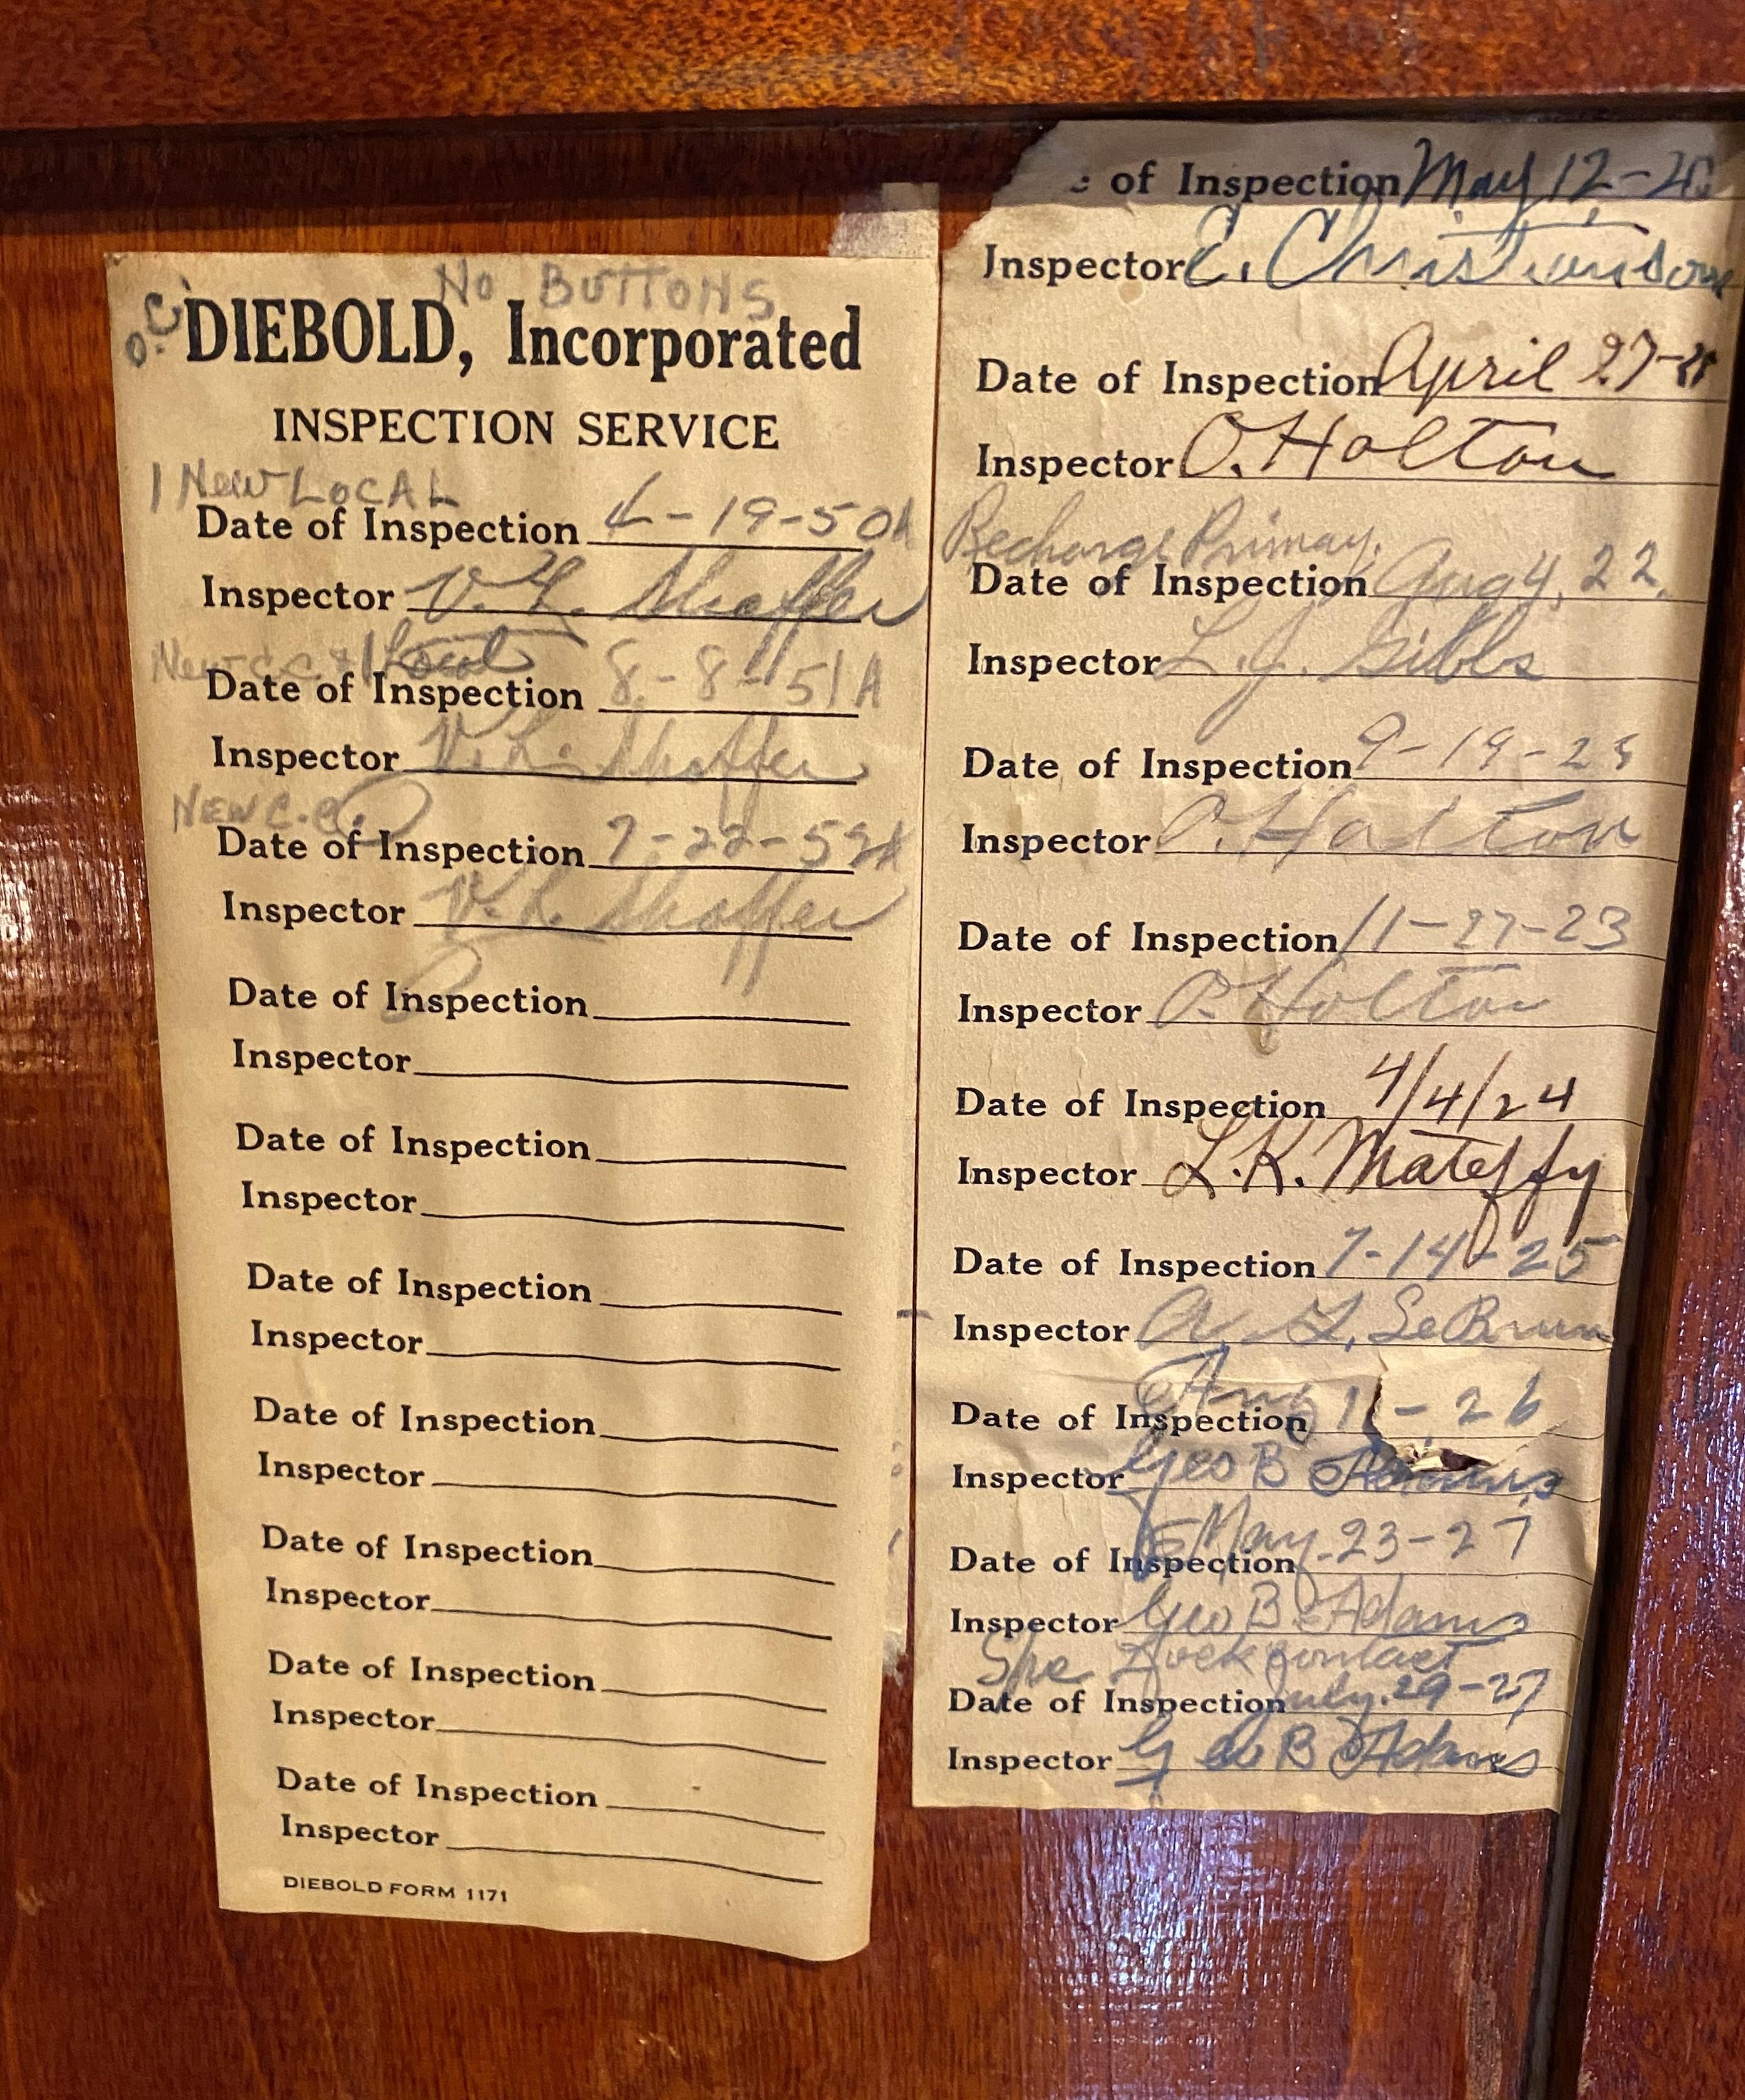 No BUTTONS
O.C.
DIEBOLD, Incorporated
INSPECTION SERVICE
1 New LOCAL
Date of Inspection -19-50A
Inspector V. L. Shaffer
New Local
Date of Inspection 8-8-51A
Inspector V. L. Shaffer
NEW C.C.
Date of Inspection 7-22-52A
Inspector V. L. Shaffer
Date of Inspection
Inspector
Date of Inspection
Inspector
Date of Inspection
Inspector
Date of Inspection
Inspector
Date of Inspection
Inspector
Date of Inspection
Inspector
Date of Inspection
Inspector
DIEBOLD FORM 1171
of Inspection May 12-20
Inspector C. Christianson
Date of Inspection April 27-
Inspector O. Holton
Recharge Primary.
Date of Inspection Aug 4, 22.
Inspector L. J. Gibbs
Date of Inspection 9-19-23
Inspector O. Holton
Date of Inspection 11-27-23
Inspector O. Holton
Date of Inspection 4/4/24
Inspector L. K. Mateffy
Date of Inspection 7-14-25
Inspector A. L. LeBrun
Date of Inspection Aug 11-26
Inspector Geo B Adams
Date of Inspection May-23-27
Inspector Geo B Adams
Lock contact
Date of Inspection July. 29-27
Inspector Geo B Adams